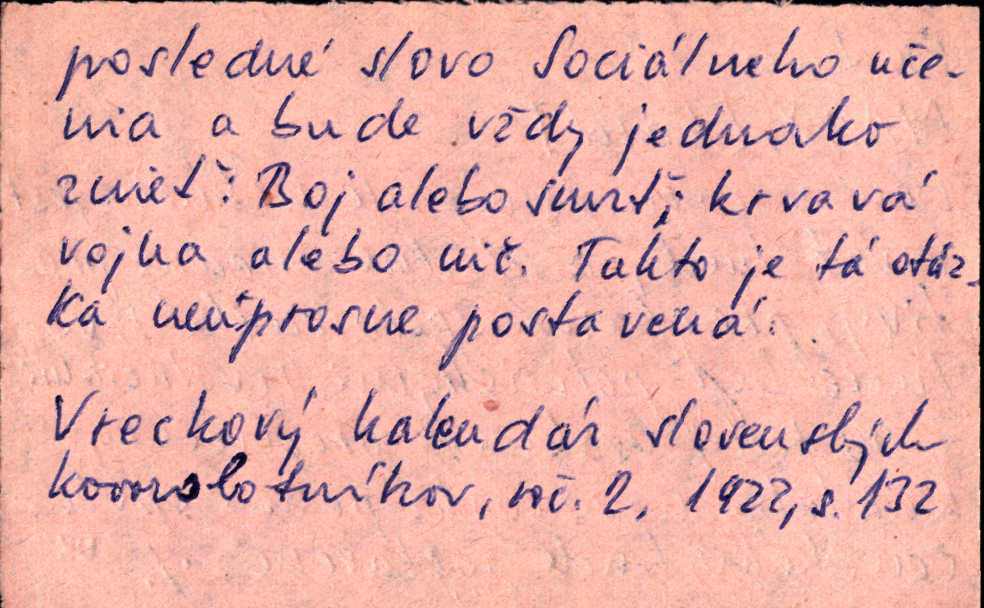 posledné slovo Sociálneho uče-
nia a bude vždy jednako
znieť: Boj alebo smrť; krvavá
vojna alebo nič. Takto je tá otáz-
ka neúprosne postavená.
Vreckový kalendár slovenských
kovorobotníkov, roč. 2, 1922, s. 132